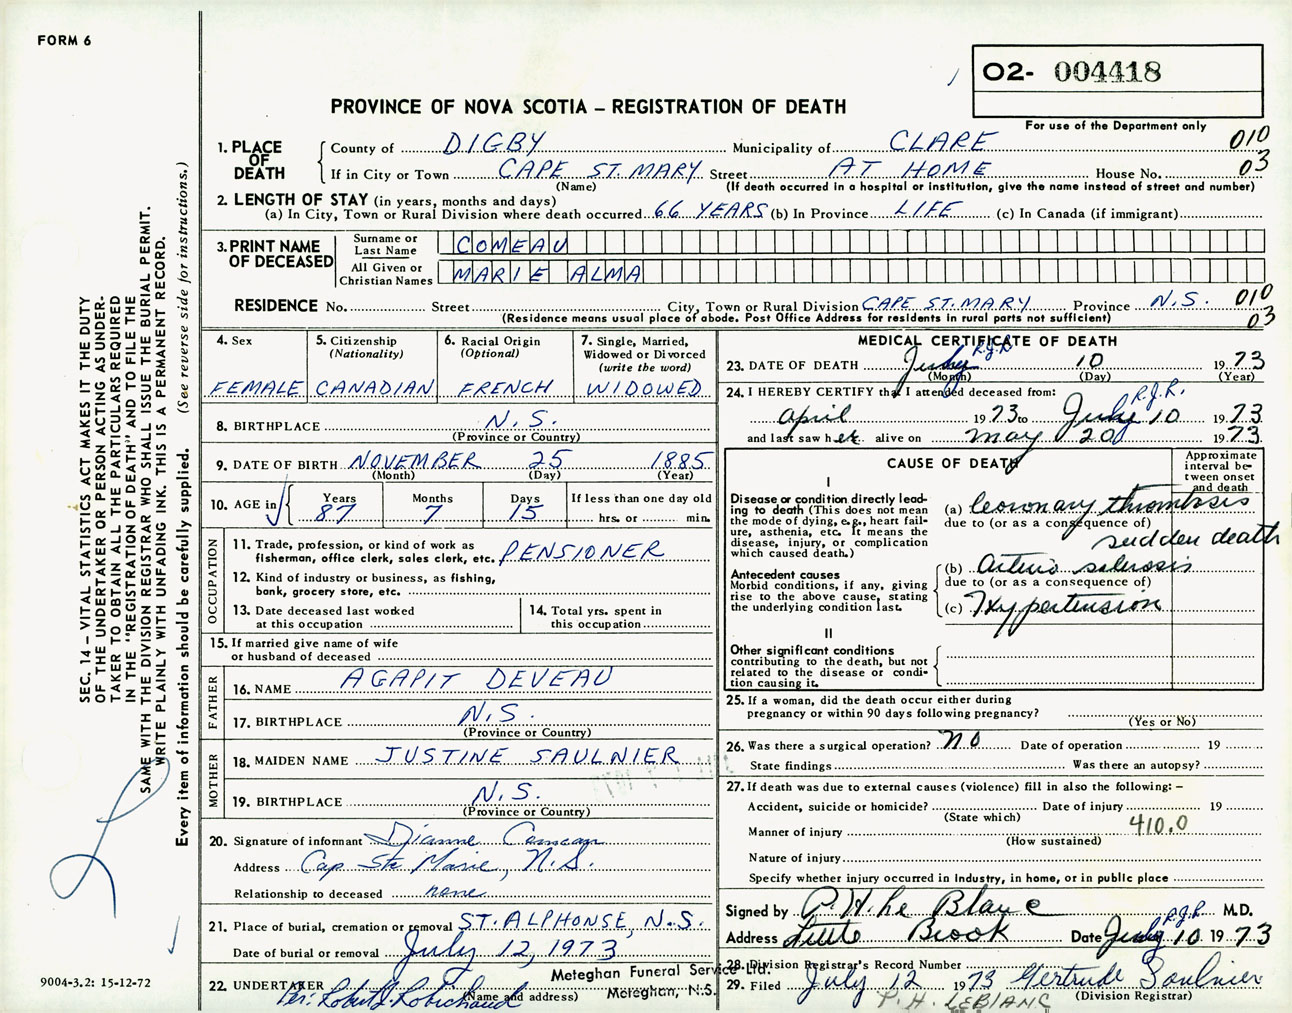 FORM 6
O2- 004418
PROVINCE OF NOVA SCOTIA – REGISTRATION OF DEATH
For use of the Department only
1. PLACE OF DEATH
County of DIGBY Municipality of CLARE 010
If in City or Town CAPE ST. MARY Street AT HOME House No. 03
(Name) (If death occurred in a hospital or institution, give the name instead of street and number)
2. LENGTH OF STAY (in years, months and days)
(a) In City, Town or Rural Division where death occurred 66 YEARS (b) In Province LIFE (c) In Canada (if immigrant)
3. PRINT NAME OF DECEASED
Surname or Last Name COMEAU
All Given or Christian Names MARIE ALMA
RESIDENCE No. Street City, Town or Rural Division CAPE ST. MARY Province N.S. 010
(Residence means usual place of abode. Post Office Address for residents in rural parts not sufficient) 03
4. Sex
FEMALE
5. Citizenship
(Nationality)
CANADIAN
6. Racial Origin
(Optional)
FRENCH
7. Single, Married,
Widowed or Divorced
(write the word)
WIDOWED
8. BIRTHPLACE N.S.
(Province or Country)
9. DATE OF BIRTH NOVEMBER 25 1885
(Month) (Day) (Year)
10. AGE in Years 87 Months 7 Days 15 If less than one day old
hrs. or min.
OCCUPATION
11. Trade, profession, or kind of work as
fisherman, office clerk, sales clerk, etc. PENSIONER
12. Kind of industry or business, as fishing,
bank, grocery store, etc.
13. Date deceased last worked
at this occupation
14. Total yrs. spent in
this occupation
15. If married give name of wife
or husband of deceased
FATHER
16. NAME AGAPIT DEVEAU
17. BIRTHPLACE N.S.
(Province or Country)
MOTHER
18. MAIDEN NAME JUSTINE SAULNIER
19. BIRTHPLACE N.S.
(Province or Country)
20. Signature of informant Dianne Comeau
Address Cap Ste Marie, N.S.
Relationship to deceased none
21. Place of burial, cremation or removal ST. ALPHONSE, N.S.
Date of burial or removal July 12, 1973
22. UNDERTAKER Per: Robert J. Robichaud
(Name and address)
Meteghan Funeral Service Ltd.
Meteghan, N.S.
MEDICAL CERTIFICATE OF DEATH
23. DATE OF DEATH July R.J.R. 10 1973
(Month) (Day) (Year)
24. I HEREBY CERTIFY that I attended deceased from: R.J.R.
April 1973 to July 10 1973
and last saw her alive on May 20 1973
CAUSE OF DEATH
Approximate
interval be-
tween onset
and death
I
Disease or condition directly lead-
ing to death (This does not mean
the mode of dying, e.g., heart fail-
ure, asthenia, etc. It means the
disease, injury, or complication
which caused death.)
(a) Coronary thrombosis
due to (or as a consequence of)
sudden death
Antecedent causes
Morbid conditions, if any, giving
rise to the above cause, stating
the underlying condition last.
(b) Arterio sclerosis
due to (or as a consequence of)
(c) Hypertension
II
Other significant conditions
contributing to the death, but not
related to the disease or condi-
tion causing it.
25. If a woman, did the death occur either during
pregnancy or within 90 days following pregnancy?
(Yes or No)
26. Was there a surgical operation? No Date of operation 19
State findings Was there an autopsy?
27. If death was due to external causes (violence) fill in also the following: –
Accident, suicide or homicide? Date of injury 19
(State which)
410.0
Manner of injury
(How sustained)
Nature of injury
Specify whether injury occurred in industry, in home, or in public place
Signed by P. H. Le Blanc M.D.
Address Little Brook Date July R.J.R. 10 1973
28. Division Registrar's Record Number
29. Filed July 12 1973 Gertrude Saulnier
(Division Registrar)
P. H. LEBLANC
SEC. 14 – VITAL STATISTICS ACT MAKES IT THE DUTY
OF THE UNDERTAKER OR PERSON ACTING AS UNDER-
TAKER TO OBTAIN ALL THE PARTICULARS REQUIRED
IN THE "REGISTRATION OF DEATH" AND TO FILE THE
SAME WITH THE DIVISION REGISTRAR WHO SHALL ISSUE THE BURIAL PERMIT.
WRITE PLAINLY WITH UNFADING INK. THIS IS A PERMANENT RECORD.
Every item of information should be carefully supplied. (See reverse side for instructions.)
9004-3.2: 15-12-72